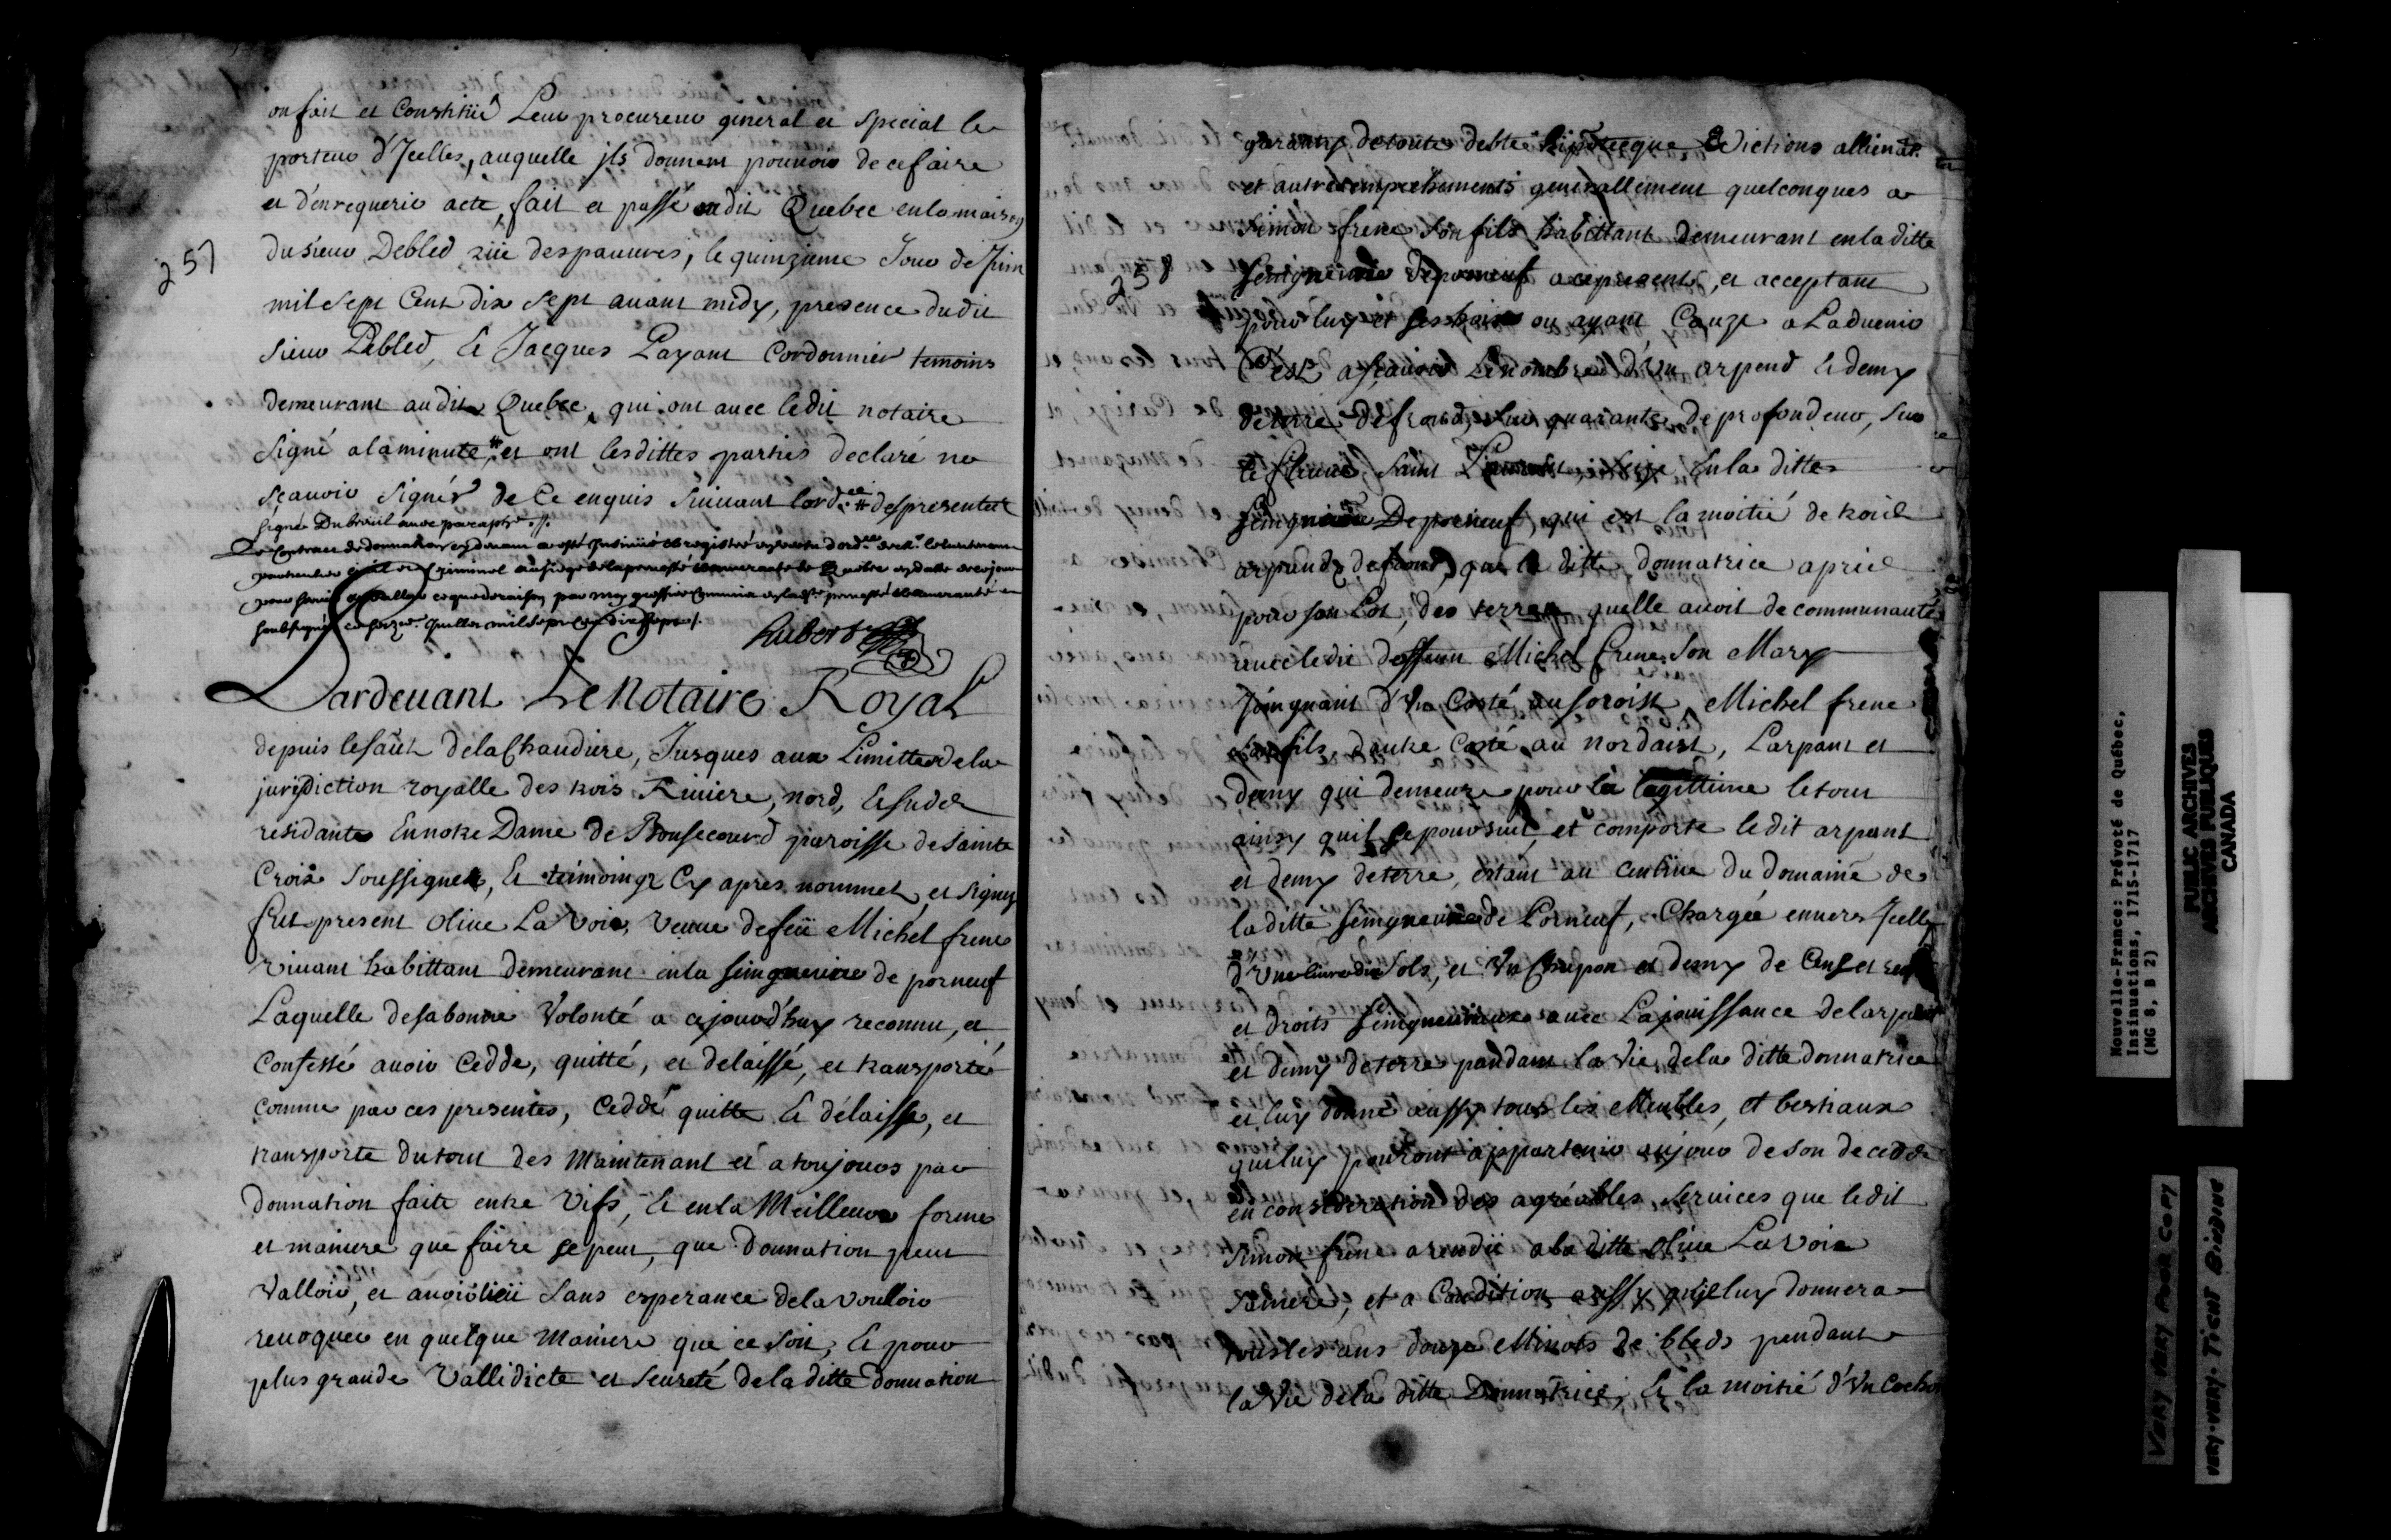 on fait et Constitué Leur procureur general et special le
porteur d'Jcelles, auquelle jls donnent pouvoir de ce faire
et d'en requerir acte, fait et passé audit Quebec en la maison
du sieur Debled rüe des pauvres, le quinzieme Jour de Juin
mil sept Cent dix sept avant midy, presence dudit
sieur Debled, Et Jacques Payant Cordonnier temoins
demeurant audit Quebec, qui ont avec ledit notaire
signé a la minute # et ont lesdittes parties declaré ne
sçavoir signer de Ce enquis suivant lord.ce # des presentes
signé Dubreüil avec paraphe ./.
Le Contract de donnation cy devant a esté Insinüé et registré
particulier civil et criminel au siege de la prevosté et amirauté de Quebec
pour servir et valloir ce que de raison par moy greffier Commis
soubsigné mil sept Cent dix sept ./.
hubert
257
Pardevant Le Notaire Royal
depuis le sault de la Chaudiere, Jusques aux Limittes de la
jurisdiction royalle des trois Riviere, nord, Et sudd
residante En notre Dame de Bonsecourd paroisse de sainte
Croix soussignez, Et temoings Cy apres nommez, et signez
fut present olive La Voie, veuve de feü Michel frene
vivant habittant demeurant en la seingneurie de porneuf
Laquelle de sa bonne Volonté a cejourd'huy reconnu, et
Confessé avoir Cedde, quitté, et delaissé, et transporté
comme par ces presentes, Cedde quitte Et délaisse, et
transporte du tout des Maintenant et a toujours par
donnation faite entre Vifs, Et en la Meilleure forme
et maniere que faire se peut, que donnation peut
Valloir, et avoir lieü sans esperance de la vouloir
revoquer en quelque Maniere que ce soit, Et pour
plus grande Vallidicte et seureté de la ditte donnation
garanty de toutes debte hipotecque Evictions allienat.
et autres empechements generallement quelconques a
simon frene son fils habittant demeurant en la ditte
258
seingneurie de porneuf a ce present, et acceptant
pour luy et ses hoirs ou ayant Cauze a Ladvenir
C'est a scavoir Le nombre d'Un arpend Et demy
de terre de frond, sur quarante de profondeur, sur
le fleuve saint Laurent, size en la ditte
seingneurie De porneuf, qui est la moitié de trois
arpends de frond, que la ditte donnatrice a pris
pour son Lot, des terres quelle avoit de communauté
avec ledit deffunt Michel frene son Mary
Joingnant d'Un Costé au soroist, Michel frene
son fils, dautre Costé au nordaist, Larpant et
demy qui demeure pour la legittime le tout
ainsy quil se poursuit, et comporte ledit arpent
et demy de terre, estant au Centive du domaine de
la ditte seingneurie de Porneuf, Chargée envers Jcelle
d'Une livre dix sols, et Un Chapon et demy de Cens et
et droits seingneuriaux avec La jouissance de larpent
et demy de terre pandant la Vie de la ditte donnatrice
et luy donne aussy tous les Meubles, et bestiaux
qui luy pouront appartenir au jour de son decedde
en consideration des agréables services que ledit
simon frene a rendü a la ditte olive La Voie
sa mere, et a Condition aussy quil luy donnera
tous les ans douze Minots de bleds pendant
la Vie de la ditte Donnatrice, Et la moitié d'Un Cochon
Nouvelle-France: Prévoté de Québec,
Insinuations, 1715-1717
(MG 8, B 2)
PUBLIC ARCHIVES
ARCHIVES PUBLIQUES
CANADA
VERY VERY POOR COPY
VERY-VERY-TIGHT BINDING